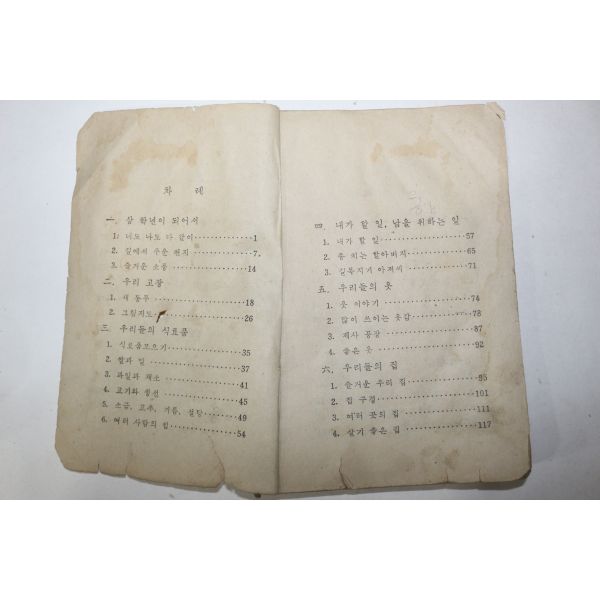 차 례
一. 삼 학년이 되어서
1. 너도 나도 다 같이 1
2. 길에서 주운 편지 7
3. 즐거운 소풍 14
二. 우리 고장
1. 새 동무 18
2. 그림지도 26
三. 우리들의 식료품
1. 식료품모으기 35
2. 쌀과 밀 37
3. 과일과 채소 41
4. 고기와 생선 45
5. 소금, 고추, 기름, 설탕 49
6. 여러 사람의 힘 54
四. 내가 할 일, 남을 위하는 일
1. 내가 할 일 57
2. 종 치는 할아버지 65
3. 길목지기 아저씨 71
五. 우리들의 옷
1. 옷 이야기 74
2. 많이 쓰이는 옷감 78
3. 제사 공장 87
4. 좋은 옷 92
六. 우리들의 집
1. 즐거운 우리 집 95
2. 집 구경 101
3. 여러 곳의 집 111
4. 살기 좋은 집 117